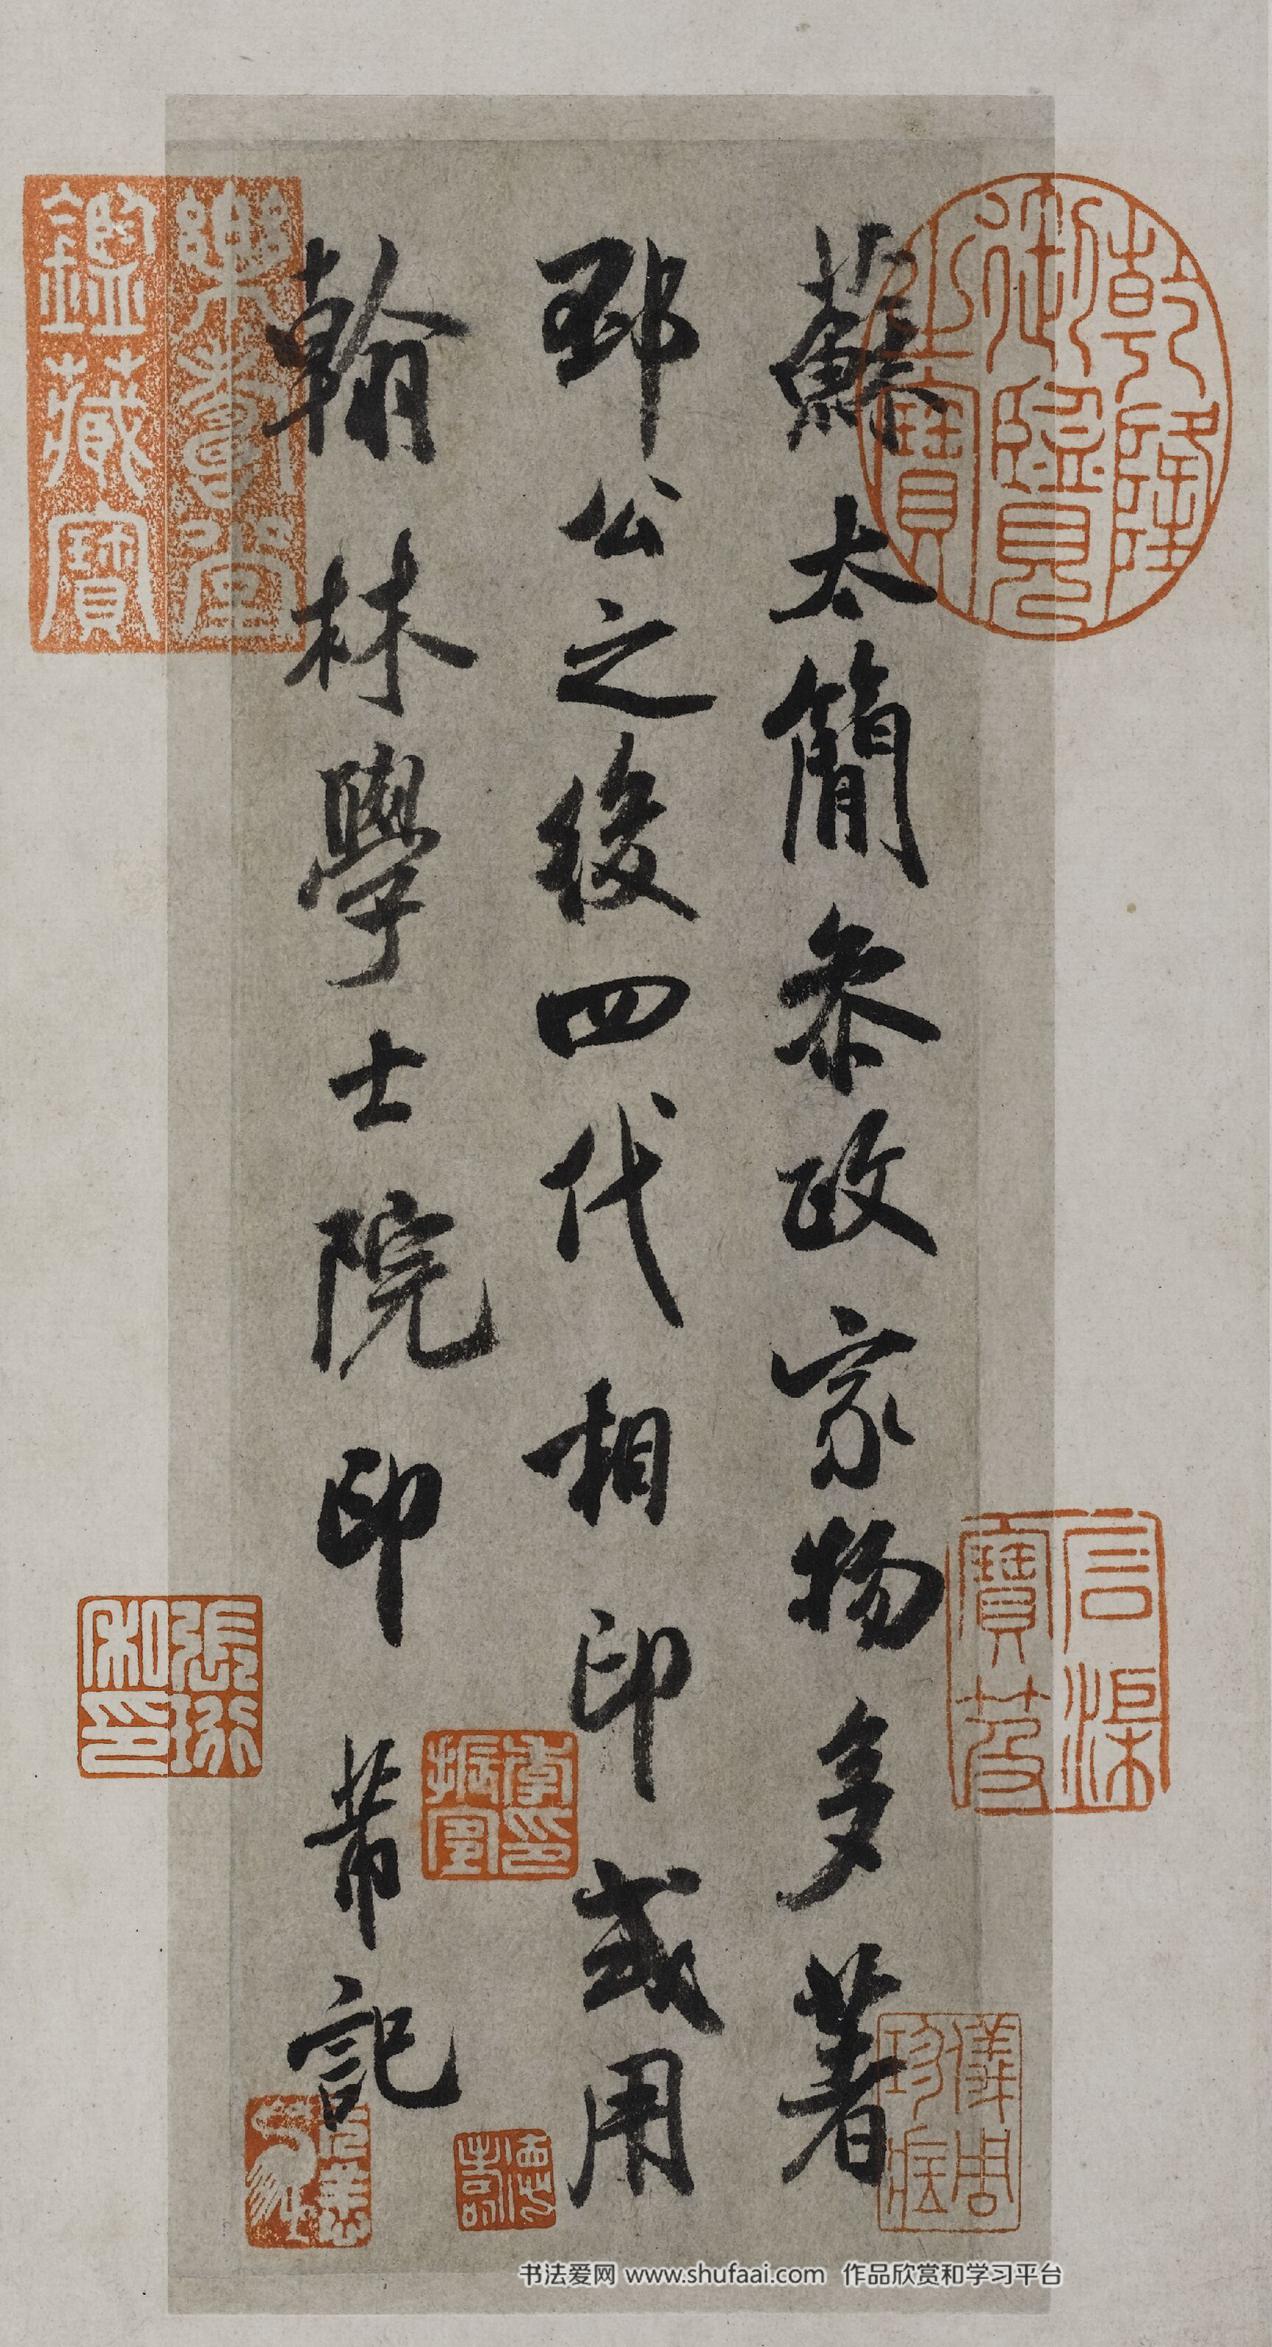 蘇太簡參政家物多著
邳公之後四代相印或用
翰林學士院印芾記
乾隆御覽之寶
樂壽堂鑑藏寶
石渠寶笈
儀周珍藏
張珩私印
書法爱网 www.shufaai.com 作品欣赏和学习平台